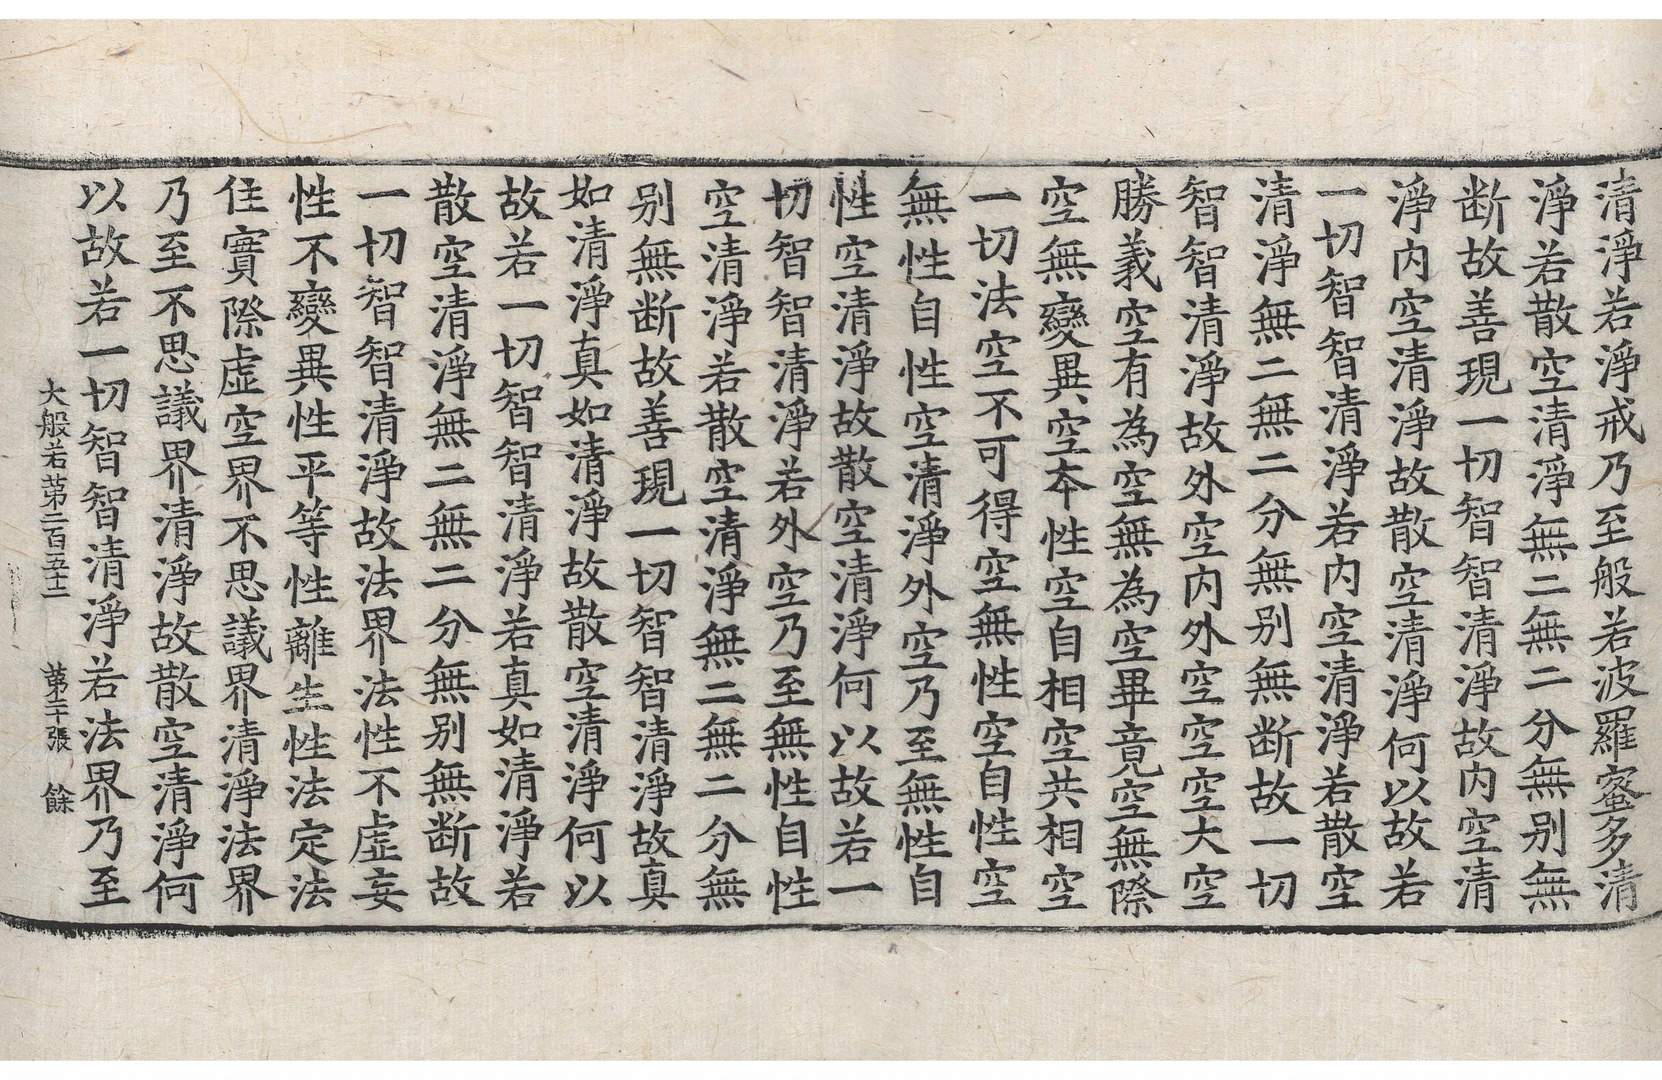 清淨若淨戒乃至般若波羅蜜多清
淨若散空清淨無二無二分無别無
断故善現一切智智清淨故内空清
淨内空清淨故散空清淨何以故若
一切智智清淨若内空清淨若散空
清淨無二無二分無别無断故一切
智智清淨故外空内外空空空大空
勝義空有為空無為空畢竟空無際
空無變異空本性空自相空共相空
一切法空不可得空無性空自性空
無性自性空清淨外空乃至無性自
性空清淨故散空清淨何以故若一
切智智清淨若外空乃至無性自性
空清淨若散空清淨無二無二分無
别無断故善現一切智智清淨故真
如清淨真如清淨故散空清淨何以
故若一切智智清淨若真如清淨若
散空清淨無二無二分無别無断故
一切智智清淨故法界法性不虛妄
性不變異性平等性離生性法定法
住實際虛空界不思議界清淨法界
乃至不思議界清淨故散空清淨何
以故若一切智智清淨若法界乃至
大般若苐二百五十二 苐二十張 餘